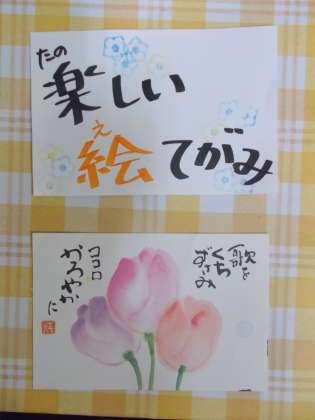 たの
楽しい
え
絵てがみ
歌を
くち
ずさみ
ココロ
かろやか